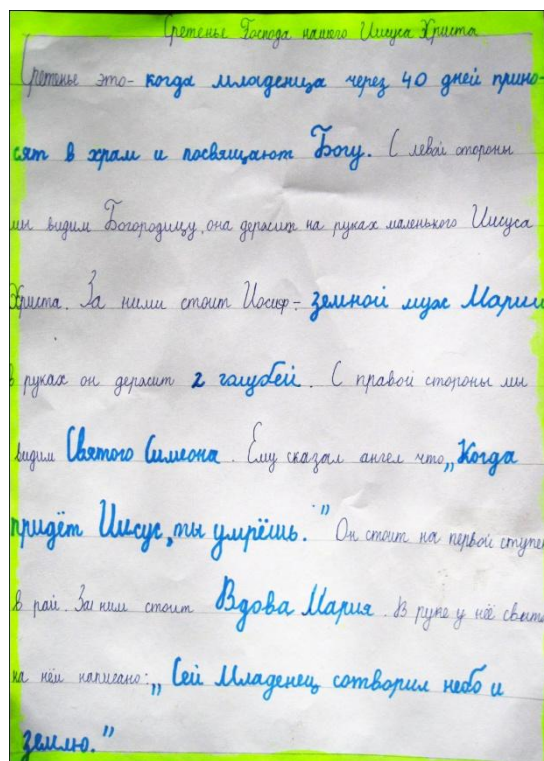 Сретенье Господа нашего Иисуса Христа
Сретенье это - когда младенца через 40 дней прино-
сят в храм и посвящают Богу. С левой стороны
мы видим Богородицу, она держит на руках маленького Иисуса
Христа. За ними стоит Иосиф - земной муж Марии
в руках он держит 2 голубей. С правой стороны мы
видим Святого Симеона. Ему сказал ангел что „Когда
придёт Иисус, ты умрёшь.” Он стоит на первой ступен
в рай. За ним стоит Вдова Мария. В руке у неё свит
на нём написано: „Сей Младенец сотворил небо и
землю.”